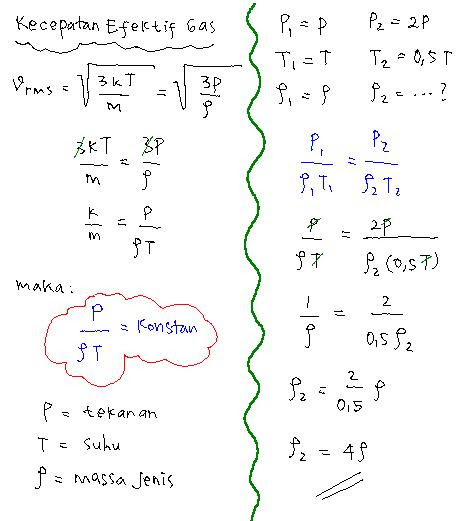 Kecepatan Efektif Gas
Vrms = √(3kT/m) = √(3P/ρ)
3kT/m = 3P/ρ
k/m = P/ρT
maka:
P/ρT = Konstan
P = tekanan
T = suhu
ρ = massa jenis
P₁ = P P₂ = 2P
T₁ = T T₂ = 0,5 T
ρ₁ = ρ ρ₂ = ...?
P₁/ρ₁T₁ = P₂/ρ₂T₂
P/ρT = 2P/ρ₂(0,5T)
1/ρ = 2/0,5ρ₂
ρ₂ = 2/0,5 ρ
ρ₂ = 4ρ